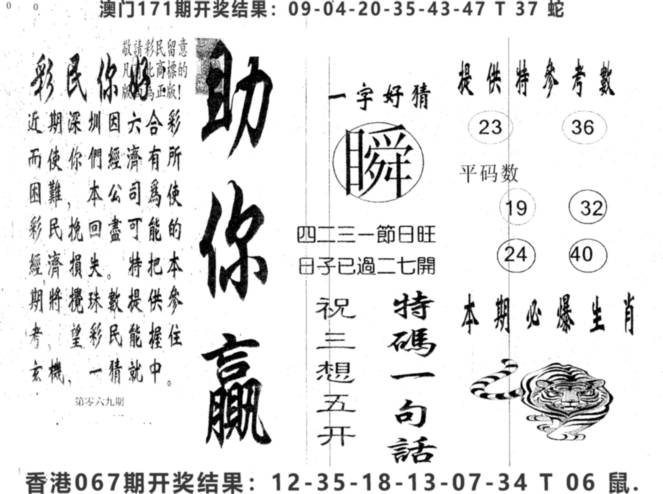 澳门171期开奖结果：09-04-20-35-43-47 T 37 蛇
敬請彩民留意
凡
商標的
版
為正版！
彩民你好
近期深圳因六合彩
而使你們經濟有所
困難，本公司爲使
彩民挽回盡可能的
經濟損失。特把本
期將攪珠數提供參
考，望彩民能握住
玄機，一猜就中。
第零六九期
助你贏
一字好猜
瞬
四二三一節日旺
日子已過二七開
特碼一句話
祝三想五开
提供特參考數
23 36
平码数
19 32
24 40
本期必爆生肖
香港067期开奖结果：12-35-18-13-07-34 T 06 鼠.